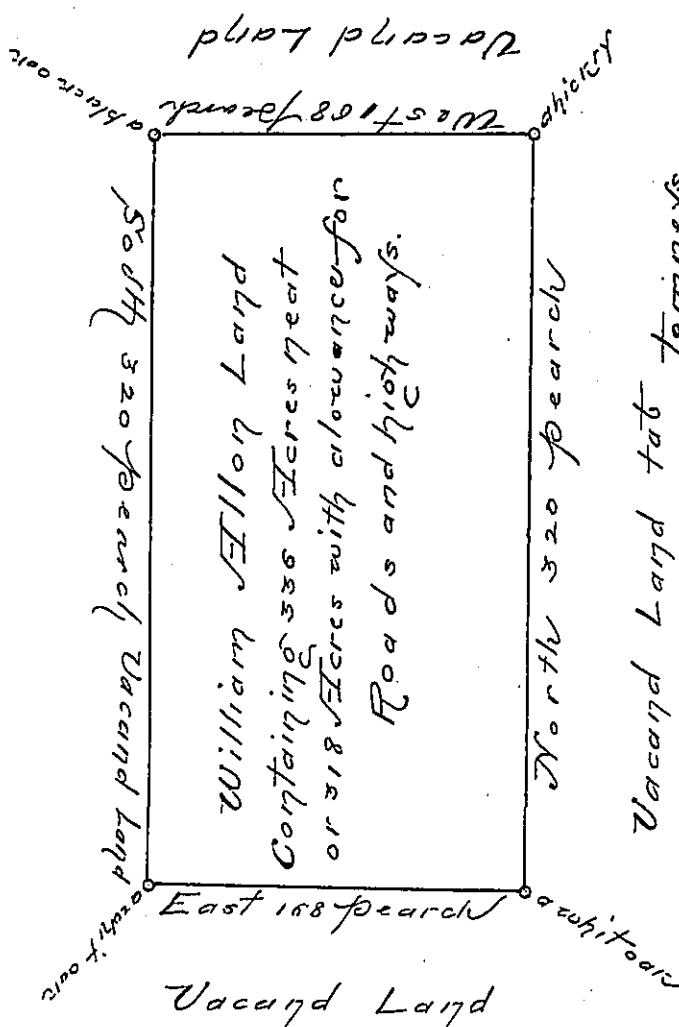 Vacand Land
a black oak
West 168 pearch
a hickry
South 320 pearch Vacand Land
William Land
Containing 336 Acres neat
or 318 Acres with alowance for
Roads and high ways.
North 320 pearch
Vacand Land
a whit oak
East 168 pearch
a whit oak
Vacand Land